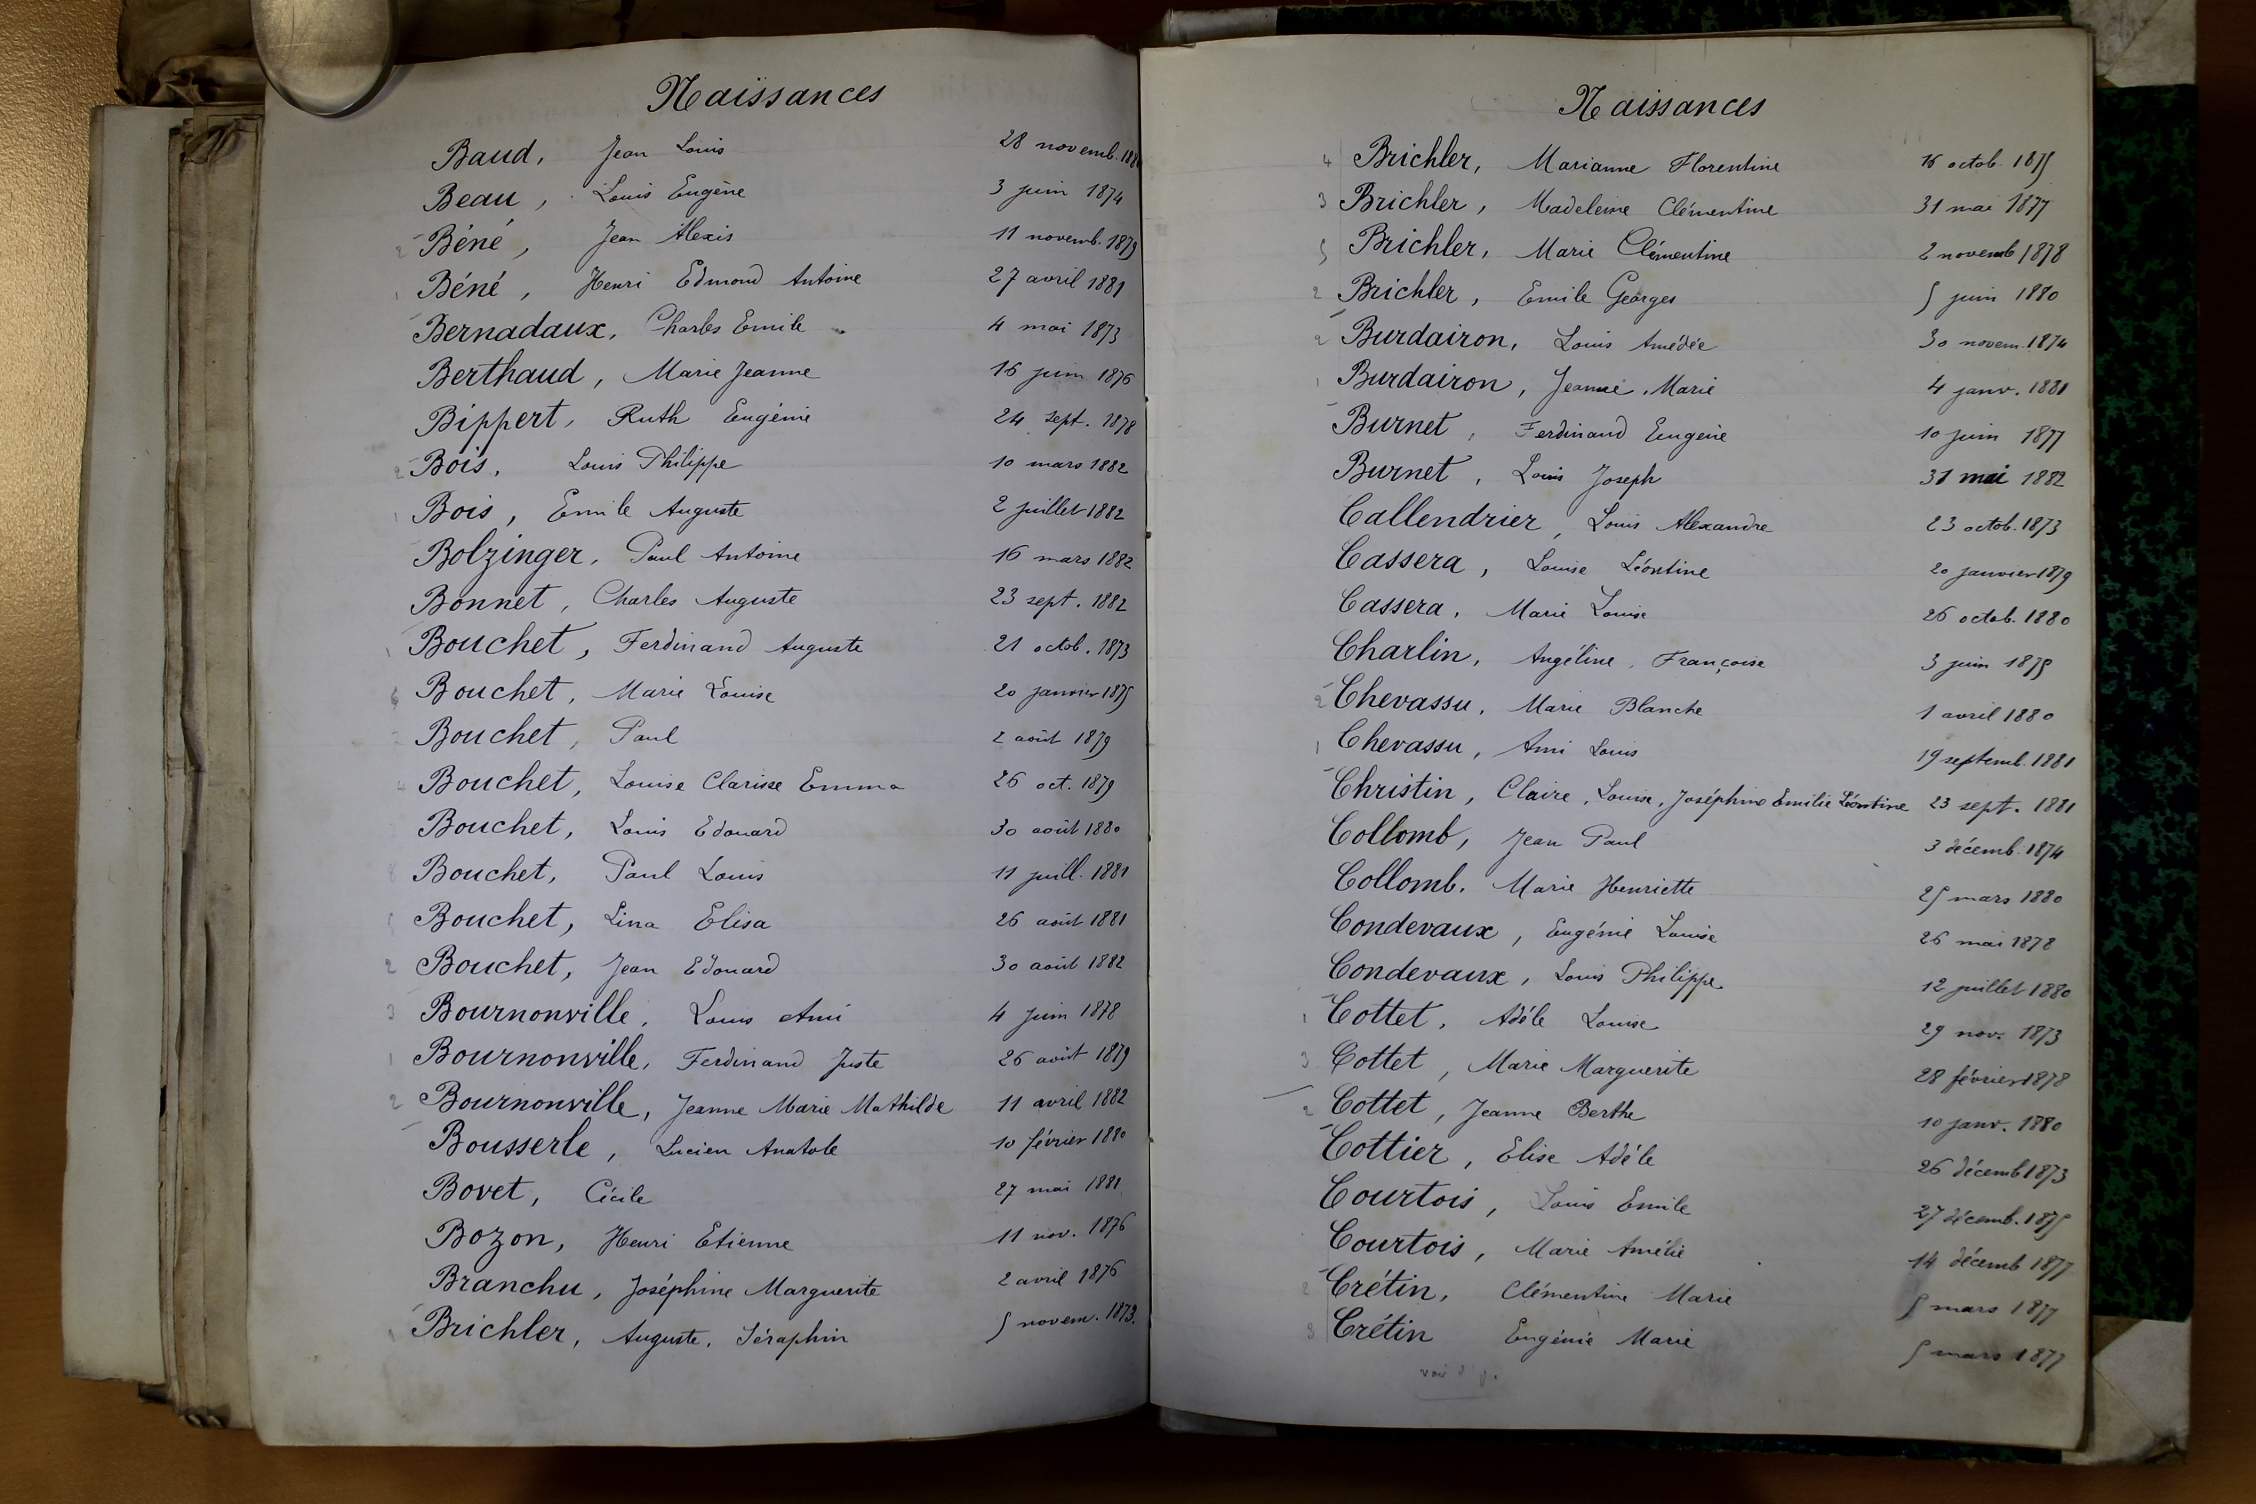 Naissances
Baud, Jean Louis 28 novemb.
Beau, Louis Eugène 3 juin 1874
2 Béné, Jean Alexis 11 novemb. 1879
1 Béné, Henri Edmond Antoine 27 avril 1881
Bernadaux, Charles Emile 4 mai 1873
Berthaud, Marie Jeanne 16 juin 1876
Bippert, Ruth Eugénie 24 sept. 1878
2 Bois, Louis Philippe 10 mars 1882
1 Bois, Emile Auguste 2 juillet 1882
Bolzinger, Paul Antoine 16 mars 1882
Bonnet, Charles Auguste 23 sept. 1882
1 Bouchet, Ferdinand Auguste 21 octob. 1873
6 Bouchet, Marie Louise 20 janvier 1875
Bouchet, Paul 2 août 1879
4 Bouchet, Louise Clarisse Emma 26 oct. 1879
Bouchet, Louis Edouard 30 août 1880
8 Bouchet, Paul Louis 11 juill. 1881
5 Bouchet, Lina Elisa 26 août 1881
2 Bouchet, Jean Edouard 30 août 1882
3 Bournonville, Louis Ami 4 juin 1878
1 Bournonville, Ferdinand Juste 26 août 1879
2 Bournonville, Jeanne Marie Mathilde 11 avril 1882
Bousserle, Lucien Anatole 10 février 1880
Bovet, Cécile 27 mai 1881
Bozon, Henri Etienne 11 nov. 1876
Branchu, Joséphine Marguerite 2 avril 1876
1 Brichler, Auguste, Séraphin 5 novem. 1873.
Naissances
4 Brichler, Marianne Florentine 16 octob. 1875
3 Brichler, Madeleine Clémentine 31 mai 1877
5 Brichler, Marie Clémentine 2 novemb 1878
2 Brichler, Emile Georges 5 juin 1880
2 Burdairon, Louis Amédée 30 novem. 1874
1 Burdairon, Jeanne, Marie 4 janv. 1881
Burnet, Ferdinand Eugène 10 juin 1877
Burnet, Louis Joseph 31 mai 1882
Callendrier, Louis Alexandre 23 octob. 1873
Cassera, Louise Léontine 20 janvier 1879
Cassera, Marie Louise 26 octob. 1880
Charlin, Angéline, Françoise 3 juin 1875
2 Chevassu, Marie Blanche 1 avril 1880
1 Chevassu, Ami Louis 19 septemb. 1881
Christin, Claire, Louise, Joséphine Emilie Léontine 23 sept. 1881
Collomb, Jean Paul 3 décemb. 1874
Collomb. Marie Henriette 25 mars 1880
Condevaux, Eugénie Louise 26 mai 1878
Condevaux, Louis Philippe 12 juillet 1880
1 Cottet, Adèle Louise 29 nov. 1873
3 Cottet, Marie Marguerite 28 février 1878
2 Cottet, Jeanne Berthe 10 janv. 1880
Cottier, Elise Adèle 26 décemb 1873
Courtois, Louis Emile 27 décemb. 1875
Courtois, Marie Amélie 14 décemb 1877
2 Crétin, Clémentine Marie 5 mars 1877
3 Crétin Eugénie Marie 5 mars 1877